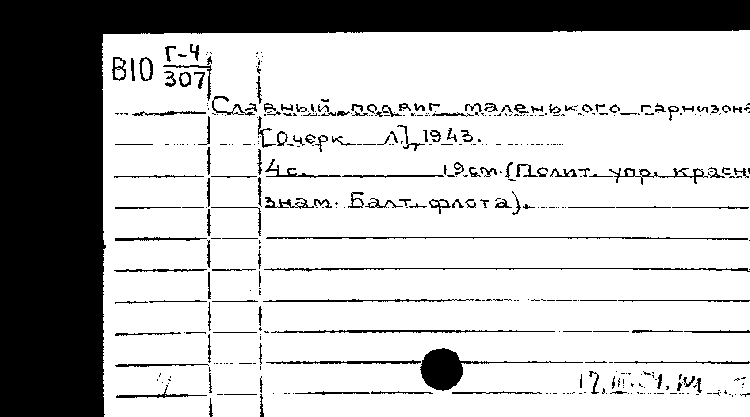 В10 Г-4
307
Славный подвиг маленького гарнизона
[Очерк Л], 1943.
4 с. 19 см. (Полит. упр. красн
знам. Балт. флота).
4